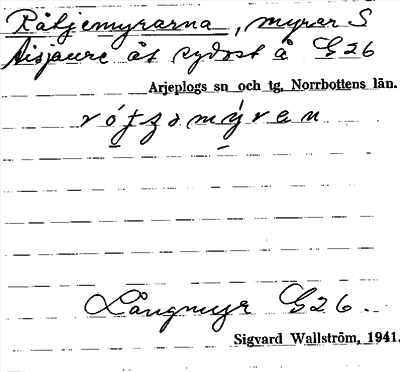 Råtjemyrarna, myrar S
Aisjaure åt sydost å G26
Arjeplogs sn och tg, Norrbottens län.
Långmyr G26.
Sigvard Wallström, 1941.